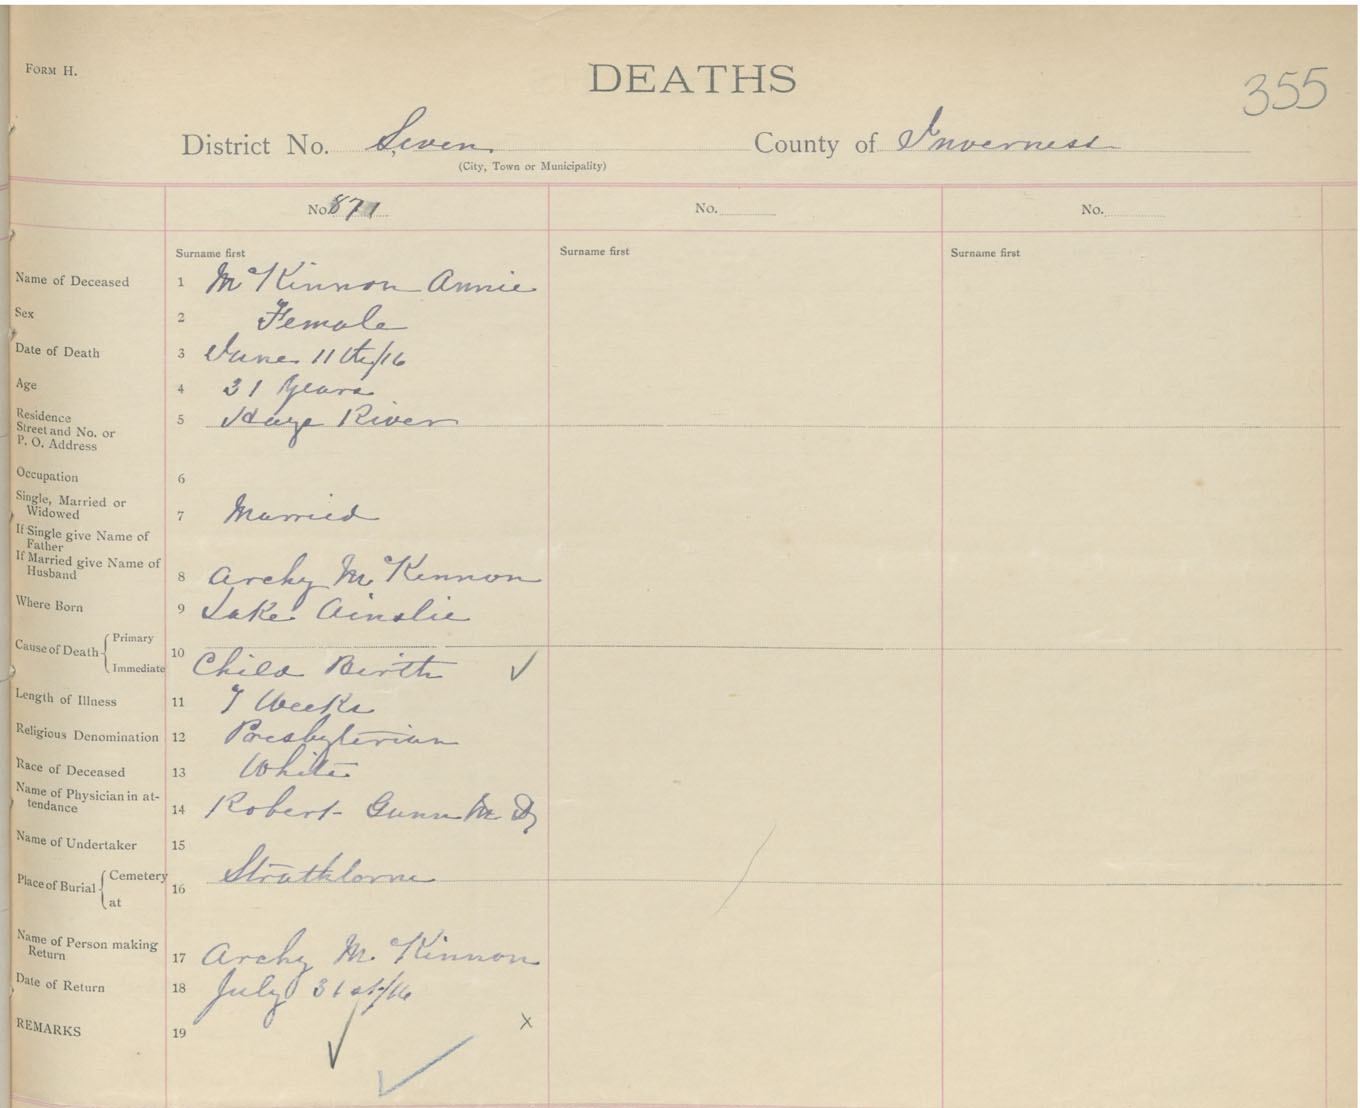 FORM H.
DEATHS
355
District No. Seven County of Inverness
(City, Town or Municipality)
No. 871 No. No.
Surname first Surname first Surname first
Name of Deceased 1 McKinnon Annie
Sex 2 Female
Date of Death 3 June 11th/16
Age 4 31 Years
Residence
Street and No. or
P. O. Address 5 Haye River
Occupation 6
Single, Married or
Widowed 7 Married
If Single give Name of
Father
If Married give Name of
Husband 8 Archy McKennon
Where Born 9 Lake Ainslie
Cause of Death Primary
Immediate 10 Child Birth ✓
Length of Illness 11 7 Weeks
Religious Denomination 12 Presbyterian
Race of Deceased 13 White
Name of Physician in at-
tendance 14 Robert Gunn M D
Name of Undertaker 15
Place of Burial Cemetery
at 16 Strathlorne
Name of Person making
Return 17 Archy McKinnon
Date of Return 18 July 31st/16
REMARKS 19 x